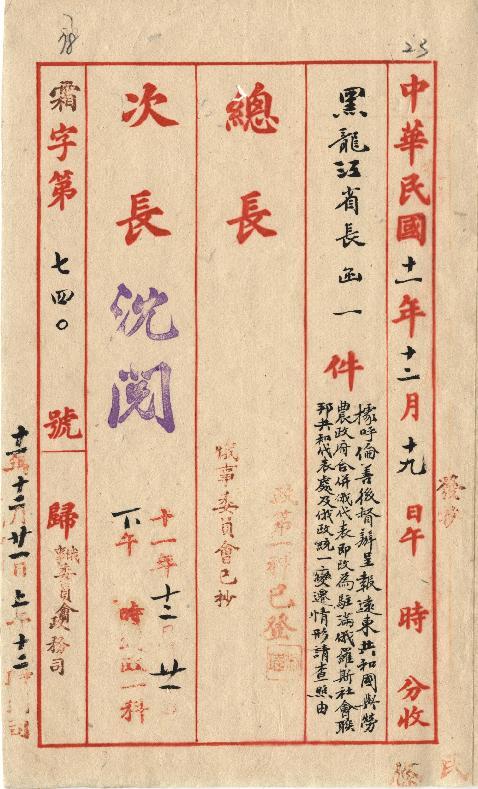 23
中華民國十一年十二月十九日午 時 分收
發抄
黑龍江省長函一件
據呼倫善後督辦呈報遠東共和國與勞
農政府合併俄代表即改為駐滿俄羅斯社會聯
邦共和代表處及俄政統一變遷情形請查照由
政第一科已登
總長
俄事委員會已抄
次長
沈閱
十一年十二月廿一日
下午 時 政一科
霜字第七四〇號
歸俄事委員會政務司
十一年十二月廿一日上午十二時